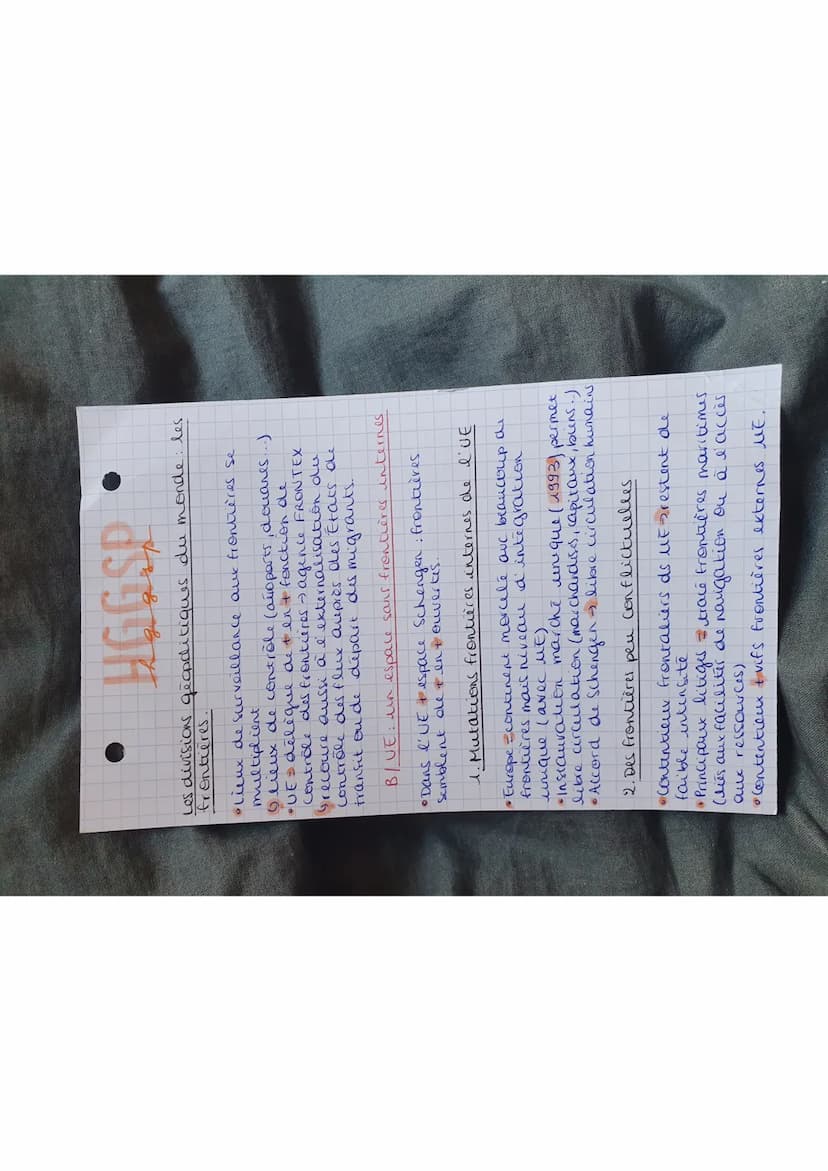 HGGSP
hggsp
Les divisions géopolitiques du monde : les
frontières.
• Lieux de surveillance aux frontières se
multiplient
↳ lieux de contrôle (aéroports, douanes...)
• UE → délègue de + en + fonction de
contrôle des frontières → agence FRONTEX
↳ recourt aussi à l'externalisation du
contrôle des flux auprès des États de
transit ou de départ des migrants.
B/ UE : un espace sans frontières internes
• Dans l'UE + espace Schengen : frontières
semblent de + en + ouvertes.
1. Mutations frontières internes de l'UE
• Europe = continent morcelé avec beaucoup de
frontières mais niveau d'intégration
unique (avec UE)
• Instauration marché unique (1993) permet
libre circulation (marchandises, capitaux, biens..)
• Accord de Schengen → libre circulation humains
2. Des frontières peu conflictuelles
• Contentieux frontaliers ds UE → restent de
faible intensité
• Principaux litiges → tracé frontières maritimes
(liés aux facilités de navigation ou à l'accès
aux ressources)
• Contentieux + vifs frontières externes UE.